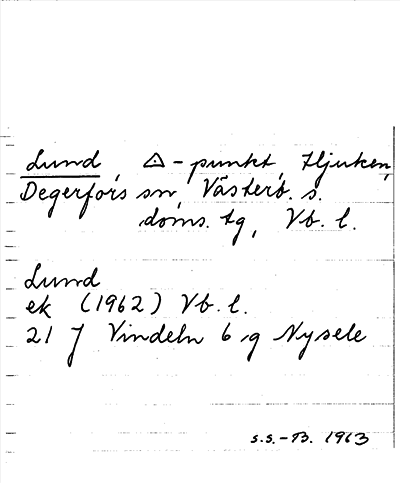 Lund, △-punkt, Hjuken,
Degerfors sn, Västerb. s.
doms. tg, Vb. l.
Lund
ek (1962) Vb. l.
21 J Vindeln 6 g Nysele
S.S.-B. 1963